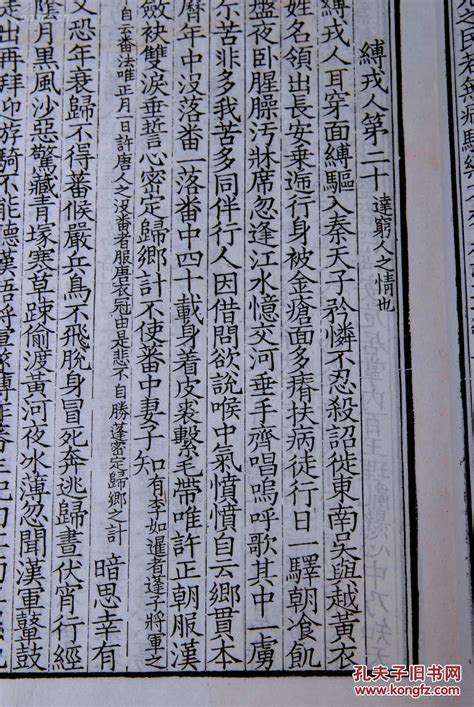 縛戎人第二十 達窮人之情也
縛戎人耳穿面縛驅入秦天子矜憐不忍殺詔徙東南吳與越黃衣
姓名領出長安乗遞行身被金瘡面多瘠扶病徒行日一驛朝飡飢
盤夜卧腥臊汚牀席忽逢江水憶交河垂手齊唱嗚呼歌其中一虜
尓苦非多我苦多同伴行人因借問欲說喉中氣憤憤自云鄉貫本
曆年中没落番一落番中四十載身着皮裘繫毛帶唯許正朝服漢
斂袂雙淚垂誓心密定歸鄉計不使番中妻子知 有李如暹者蓬子將軍之
自云番法唯正月一日許唐人之没番者服唐衣冠由是悲不自勝遂密定歸鄉之計 暗思幸有
又恐年衰歸不得蕃候嚴兵鳥不飛脫身冒死奔逃歸晝伏宵行經
陰月黑風沙惡驚藏青塚寒草疎偷渡黄河夜冰薄忽聞漢軍鼙鼓
出再拜迎游騎不能聽漢語將軍縛作蕃
孔夫子旧书网
www.kongfz.com